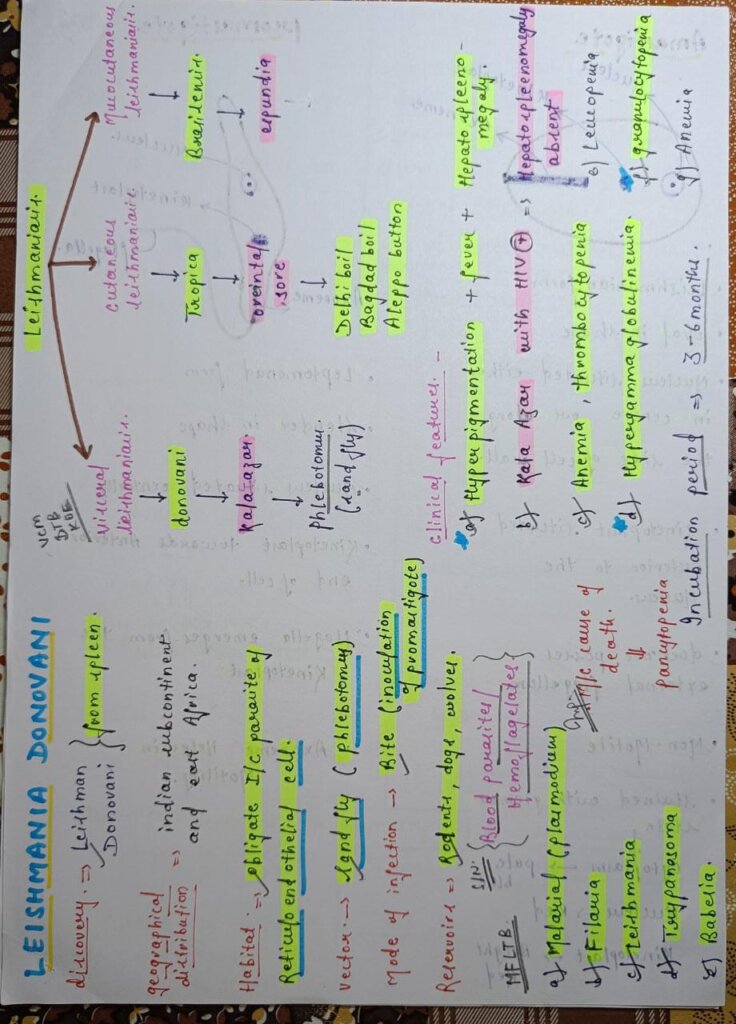 LEISHMANIA DONOVANI
discovery. => Leishman
Donovani } from spleen.
geographical distribution => indian subcontinent
and east Africa.
Habitat => obligate I/c parasite of
Reticulo endothelial cell.
vector -> sand fly (phlebotomus)
Mode of infection -> Bite (inoculation
of promastigote)
Reservoirs => Rodents, dogs, wolves.
S/N: { Blood parasites/
Hemoflagelates }
MFLTB
a) Malarial (plasmodium)
b) Filaria
c) Leishmania
d) Trypanosoma
e) Babesia.
Imp: cause of
death.
⇓
pancytopenia
Leishmaniasis.
VCM
DTB
KOE
visceral
leishmaniasis.
↓
donovani
↓
Kalaazar.
↓
phlebotomus
(sand fly)
cutaneous
leishmaniasis.
↓
Tropica
↓
oreintal
sore
↓
Delhi boil
Bagdad boil
Aleppo button
Mucocutaneous
leishmaniasis
↓
Braziliensis
↓
espundia
clinical features. -
a) Hyperpigmentation + fever + Hepatospleeno-
megaly.
b) Kala Azar with HIV (+) => Hepatospleenomegaly
absent
c) Anemia, thrombocytopenia
d) Hypergamma globulinemia
e) Leucopenia
f) granulocytopenia
g) Anemia
Incubation period => 3-6 months.